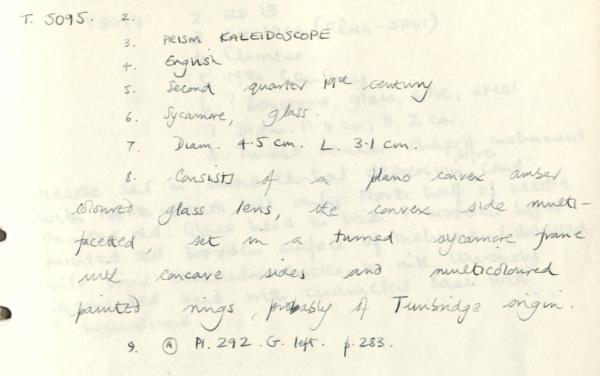 T. 5095. 2.
3. PRISM KALEIDOSCOPE
4. English
5. Second quarter 19th century
6. Sycamore, glass.
7. Diam. 4.5 cm. L. 3.1 cm.
8. Consists of a plano convex amber
coloured glass lens, the convex side multi-
facetted, set in a turned sycamore frame
with concave sides and multicoloured
painted rings, probably of Tunbridge origin.
9. A Pl. 292. G. left. p. 283.